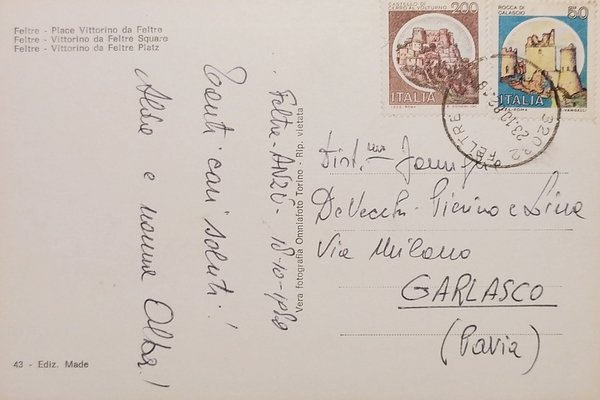 Feltre - Place Vittorino da Feltre
Feltre - Vittorino da Feltre Square
Feltre - Vittorino da Feltre Platz
. Feltre - ANZÙ - 18-10-1982
Tanti cari saluti!
Aldo e nonna Alba!
43 - Ediz. Made
Vera fotografia Omniafoto Torino - Rip. vietata
CASTELLO DI
CERRO AL VOLTURNO
200
ITALIA
ROCCA DI
CALASCIO
50
ITALIA
32032 FELTRE
Famiglia
De Vecchi Pierino e Lina
Via Milano
GARLASCO
(Pavia)